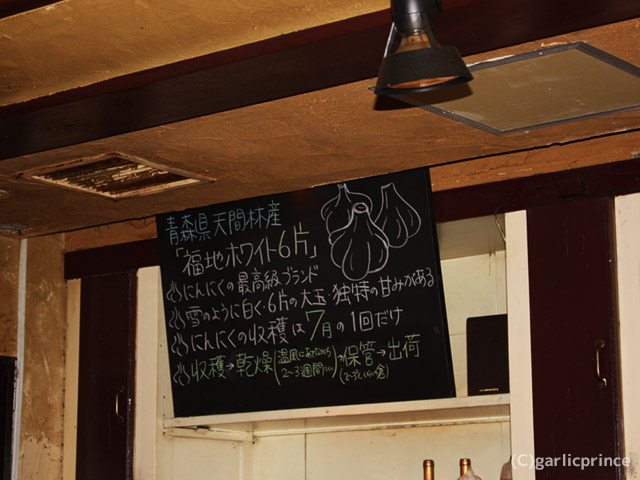 青森県天間林産
「福地ホワイト6片」
にんにくの最高級ブランド
雪のように白く・6片の大玉・独特の甘みがある
にんにくの収穫は7月の1回だけ
収穫→乾燥(温風にあてながら 2~3週間くらい)→保管→出荷
(C)garlicprince